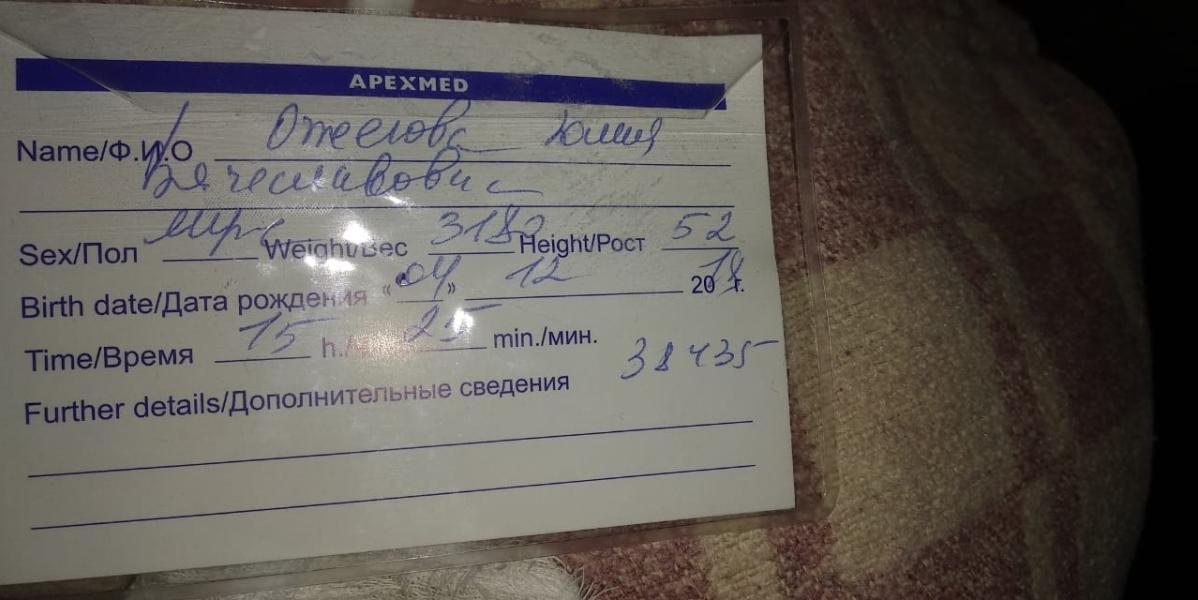 APEXMED
Name/Ф.И.О Ожегова Юлия
Вячеславовна
Sex/Пол Weight/Вес 3180 Height/Рост 52
Birth date/Дата рождения «04» 12 2018 г.
Time/Время 15 h./ч. 25 min./мин.
38435
Further details/Дополнительные сведения